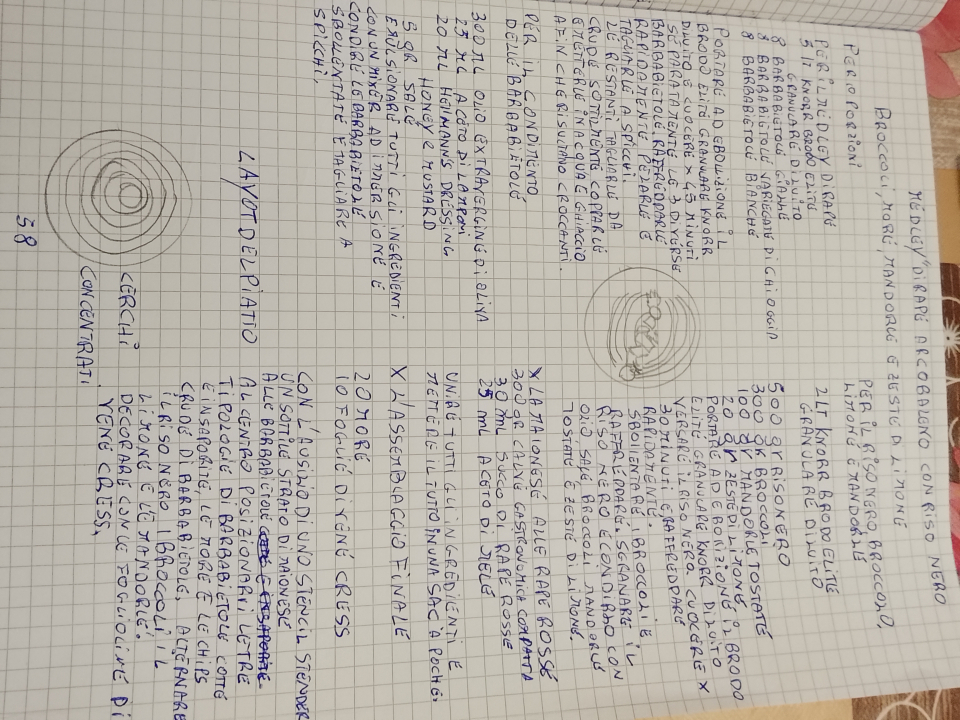 "MEDLEY" DI RAPE ARCOBALENO CON RISO NERO
BROCCOLI, MORE, MANDORLE E ZESTE DI LIMONE
PER 10 PORZIONI
PER IL MEDLEY DI RAPE
5 LT KNORR BRODO ELITE
GRANULARE DILUITO
8 BARBABIETOLE GIALLE
8 BARBABIETOLE VARIEGATE DI CHIOGGIA
8 BARBABIETOLE BIANCHE
PORTARE AD EBOLLIZIONE IL
BRODO ELITE GRANULARE KNORR
DILUITO E CUOCERE X 45 MINUTI
SEPARATAMENTE LE 3 DIVERSE
BARBABIETOLE, RAFFREDDARLE
RAPIDAMENTE PELARLE E
TAGLIARLE A SPICCHI.
LE RESTANTI TAGLIARLE DA
CRUDE SOTILMENTE COPPARLE
E METTERLE IN ACQUA E GHIACCIO
AFINCHE RISULTANO CROCCANTI.
PER IL CONDIMENTO
DELLE BARBABIETOLE
300 ML OLIO EXTRAVERGINE DI OLIVA
25 ML ACETO DI LAMPONI
20 ML HELLMANN'S DRESSING
HONEY E MUSTARD
5 gr SALE
EMULSIONARE TUTI GLI INGREDIENTI
CON UN MIXER AD IMMERSIONE E
CONDIRE LE BARBABIETOLE
SBOLLENTATE E TAGLIARE A
SPICCHI.
LAYOT DEL PIATTO
CERCHI
CONCENTRATI
58
PER IL RISO NERO BROCCOLI,
LIMONE E MANDORLE
2 LT KNORR BRODO ELITE
GRANULARE DILUITO
500 gr RISO NERO
300 gr BROCCOLI
100 gr MANDORLE TOSTATE
20 gr ZESTE DI LIMONE
PORTARE AD EBOLIZIONE IL BRODO
ELITE GRANULARE KNORR DILUITO
VERSARE IL RISO NERO CUOCERE X
30 MINUTI E RAFFREDDARE
RAPIDAMENTE.
SBOLENTARE I BROCCOLI E
RAFFREDDARE, SGRANARE IL
RISO NERO E CONDIRLO CON
OLIO SALE BROCCOLI MANDORLE
TOSTATE E ZESTE DI LIMONE.
X LA MAIONESE ALLE RAPE ROSSE
300 gr CALVÉ GASTRONOMICA COMPATTA
30 ML SUCCO DI RAPE ROSSE
25 ML ACETO DI MELE
UNIRE TUTTI GLI INGREDIENTI E
METTERE IL TUTTO IN UNA SAC A POCHE.
X L'ASSEMBLAGGIO FINALE
20 MORE
10 FOGLIE DI VENE CRESS
CON L'AUSILIO DI UNO STENCIL STENDERE
UN SOTTILE STRATO DI MAIONESE
ALLE BARBABIETOLE
AL CENTRO POSIZIONARVI LE TRE
TIPOLOGIE DI BARBABIETOLE COTTE
E INSAPORITE, LE MORE E LE CHIPS
CRUDE DI BARBABIETOLE, ALTERNARE
IL RISO NERO I BROCCOLI IL
LIMONE E LE MANDORLE.
DECORARE CON LE FOGLIOLINE DI
VENE CRESS,